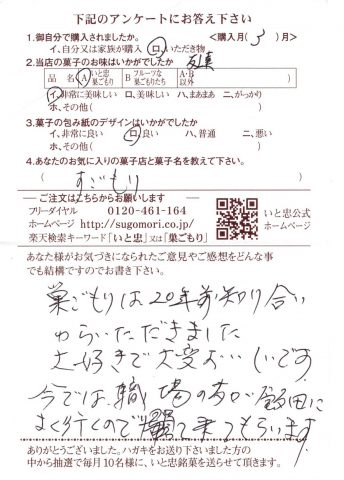 下記のアンケートにお答え下さい
1.御自分で購入されましたか。 〈購入月( 3 )月〉
イ、自分又は家族が購入 ロ、いただき物
2.当店の菓子のお味はいかがでしたか 友達
品 名 A いと忠巣ごもり B フルーツな巣ごもりたち A・B以外( )
イ、非常に美味しい ロ、美味しい ハ、まあまあ ニ、がっかり
ホ、その他( )
3.菓子の包み紙のデザインはいかがでしたか
イ、非常に良い ロ、良い ハ、普通 ニ、悪い
ホ、その他( )
4.あなたのお気に入りの菓子店と菓子名を教えて下さい。
( すごもり )
ご注文はこちらからお願いします
フリーダイヤル 0120-461-164
ホームページ http://sugomori.co.jp/
楽天検索キーワード「いと忠」又は「巣ごもり」
いと忠公式
ホームページ
あなた様がお気づきになられたご意見やご感想をどんな事
でも結構ですのでお書き下さい。
巣ごもりは20年前知り合い
からいただきました
大好きで大変お…しいです
今では職場の方が飯田に
よく行くので買って来てもらいます
ありがとうございました。ハガキをお送り下さいました方の
中から抽選で毎月10名様に、いと忠銘菓を送らせて頂きます。